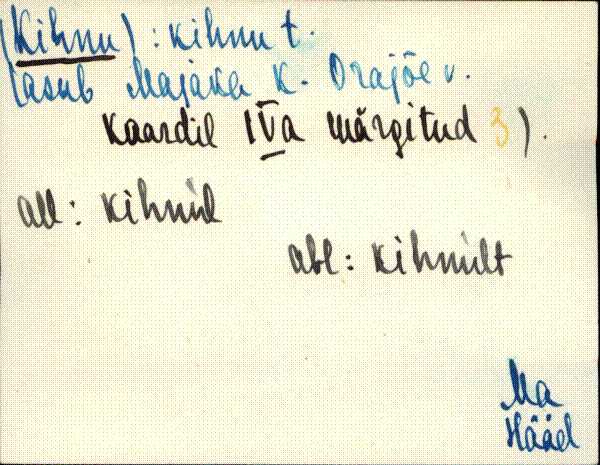 (Kihnu) : kihnu t.
(asub Majaka k. Orajõe v.
Kaardil IVa märgitud 3).
all: kihnul
abl: kihnult
Ma
Hääd